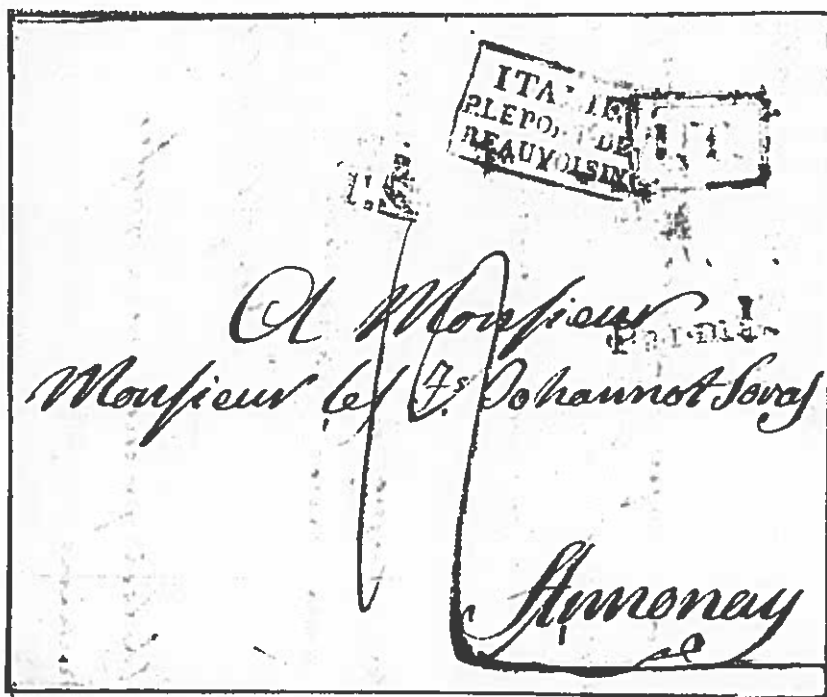 ITALIE
P.LE PONT DE
BEAUVOISIN
A Monsieur
Monsieur les f.s Johannot Soras
Annonay